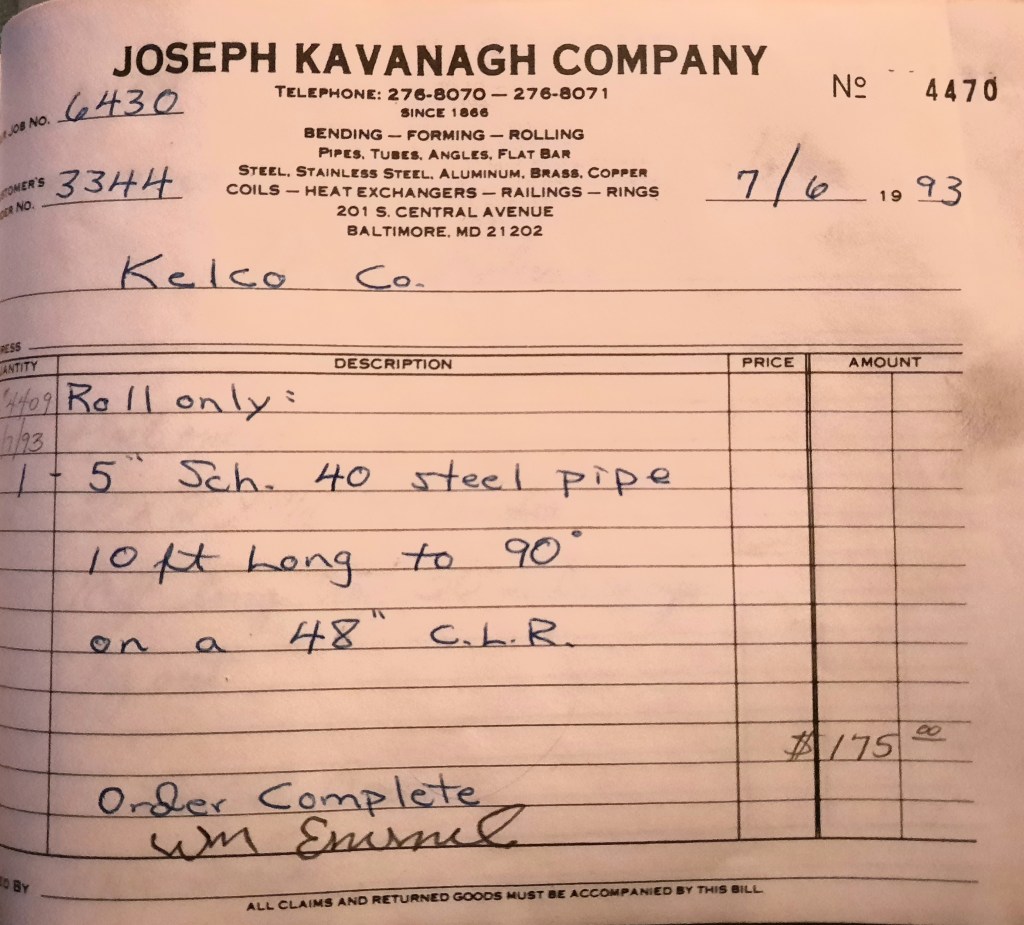 JOSEPH KAVANAGH COMPANY
TELEPHONE: 276-8070 — 276-8071
SINCE 1866
BENDING — FORMING — ROLLING
PIPES, TUBES, ANGLES, FLAT BAR
STEEL, STAINLESS STEEL, ALUMINUM, BRASS, COPPER
COILS — HEAT EXCHANGERS — RAILINGS — RINGS
201 S. CENTRAL AVENUE
BALTIMORE, MD 21202
Nº 4470
JOB NO. 6430
TOMER'S
NO. 3344
7/6 1993
Kelco Co.
RESS
ANTITY DESCRIPTION PRICE AMOUNT
4409 Roll only:
/93
1 - 5" Sch. 40 steel pipe
10 ft Long to 90°
on a 48" C.L.R.
$ 175 00
Order Complete
Wm
BY
ALL CLAIMS AND RETURNED GOODS MUST BE ACCOMPANIED BY THIS BILL